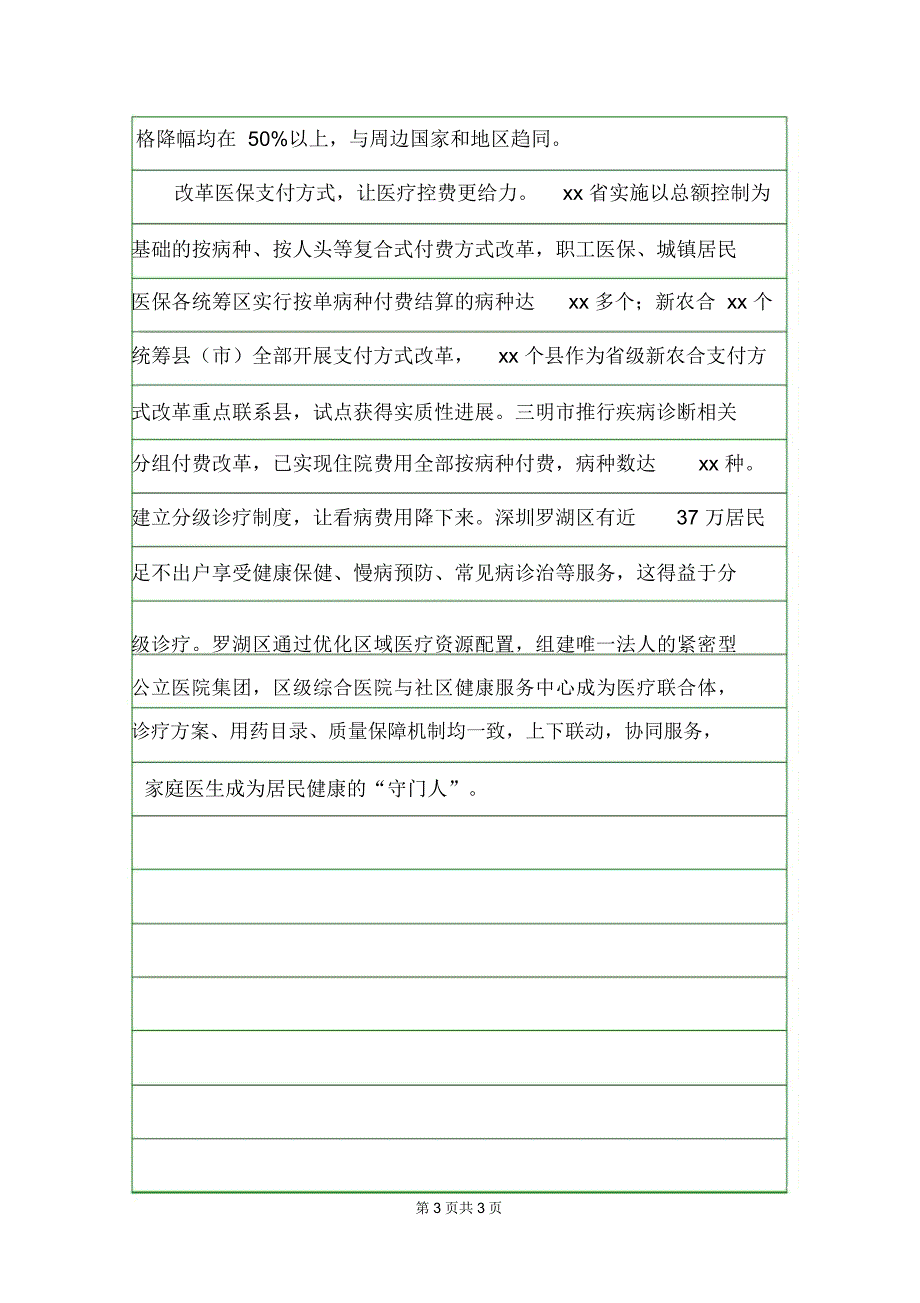 格降幅均在 50%以上，与周边国家和地区趋同。
改革医保支付方式，让医疗控费更给力。 xx 省实施以总额控制为
基础的按病种、按人头等复合式付费方式改革，职工医保、城镇居民
医保各统筹区实行按单病种付费结算的病种达 xx 多个；新农合 xx 个
统筹县（市）全部开展支付方式改革， xx 个县作为省级新农合支付方
式改革重点联系县，试点获得实质性进展。三明市推行疾病诊断相关
分组付费改革，已实现住院费用全部按病种付费，病种数达 xx 种。
建立分级诊疗制度，让看病费用降下来。深圳罗湖区有近 37 万居民
足不出户享受健康保健、慢病预防、常见病诊治等服务，这得益于分
级诊疗。罗湖区通过优化区域医疗资源配置，组建唯一法人的紧密型
公立医院集团，区级综合医院与社区健康服务中心成为医疗联合体，
诊疗方案、用药目录、质量保障机制均一致，上下联动，协同服务，
家庭医生成为居民健康的“守门人”。
第 3 页共 3 页